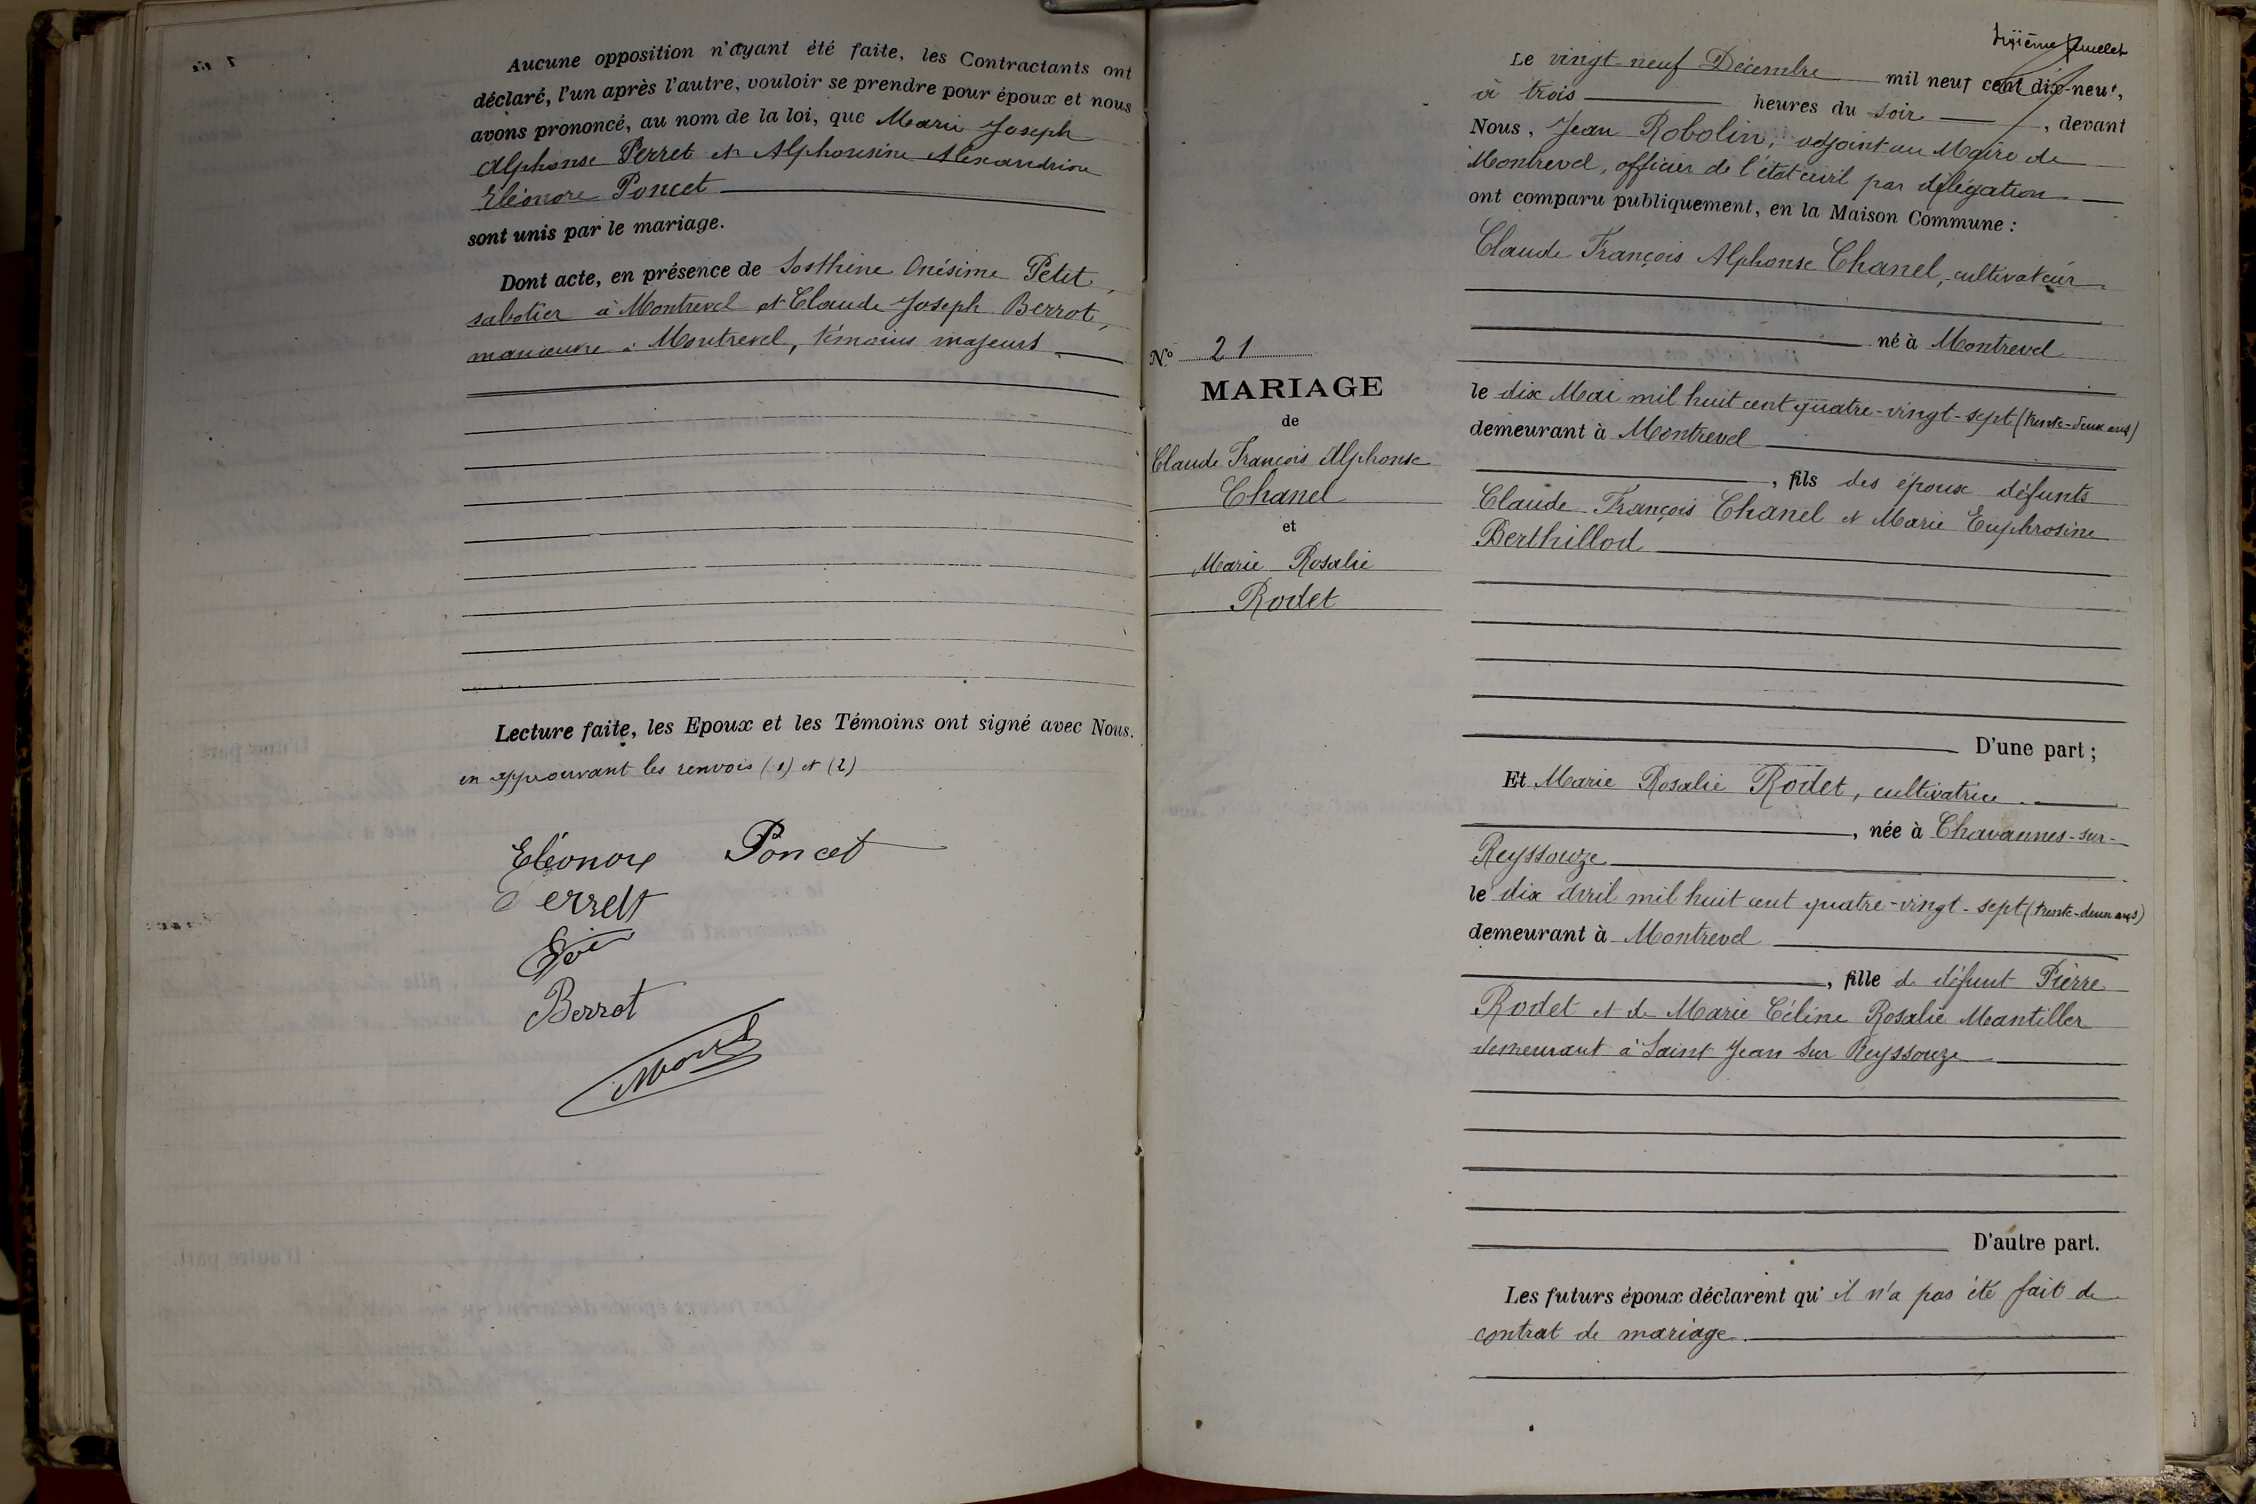 Aucune opposition n'ayant été faite, les Contractants ont
déclaré, l'un après l'autre, vouloir se prendre pour époux et nous
avons prononcé, au nom de la loi, que Marie Joseph
Alphonse Perret et Alphonsine Alexandrine
Eléonore Poncet
sont unis par le mariage.
Dont acte, en présence de Sosthène Onésime Petit,
sabotier à Montrevel et Claude Joseph Berrot,
manœuvre à Montrevel, témoins majeurs
Lecture faite, les Epoux et les Témoins ont signé avec Nous.
en approuvant les renvois (1) et (2)
Eléonore Poncet
Perrett
Berrot
No 21
MARIAGE
de
Claude François Alphonse
Chanel
et
Marie Rosalie
Rodet
feuillet
Le vingt-neuf Décembre mil neuf cent dix-neuf,
à trois heures du soir, devant
Nous, Jean Robolin, adjoint au Maire de
Montrevel, officier de l'état civil par délégation
ont comparu publiquement, en la Maison Commune :
Claude François Alphonse Chanel, cultivateur
né à Montrevel
le dix Mai mil huit cent quatre-vingt-sept (trente-deux ans)
demeurant à Montrevel
, fils des époux défunts
Claude François Chanel et Marie Euphrosine
Berthillod
D'une part ;
Et Marie Rosalie Rodet, cultivatrice
, née à Chavannes-sur-
Reyssouze
le dix Avril mil huit cent quatre-vingt-sept (trente-deux ans)
demeurant à Montrevel
, fille de défunt Pierre
Rodet et de Marie Céline Rosalie Mantiller
demeurant à Saint Jean sur Reyssouze
D'autre part.
Les futurs époux déclarent qu'il n'a pas été fait de
contrat de mariage.